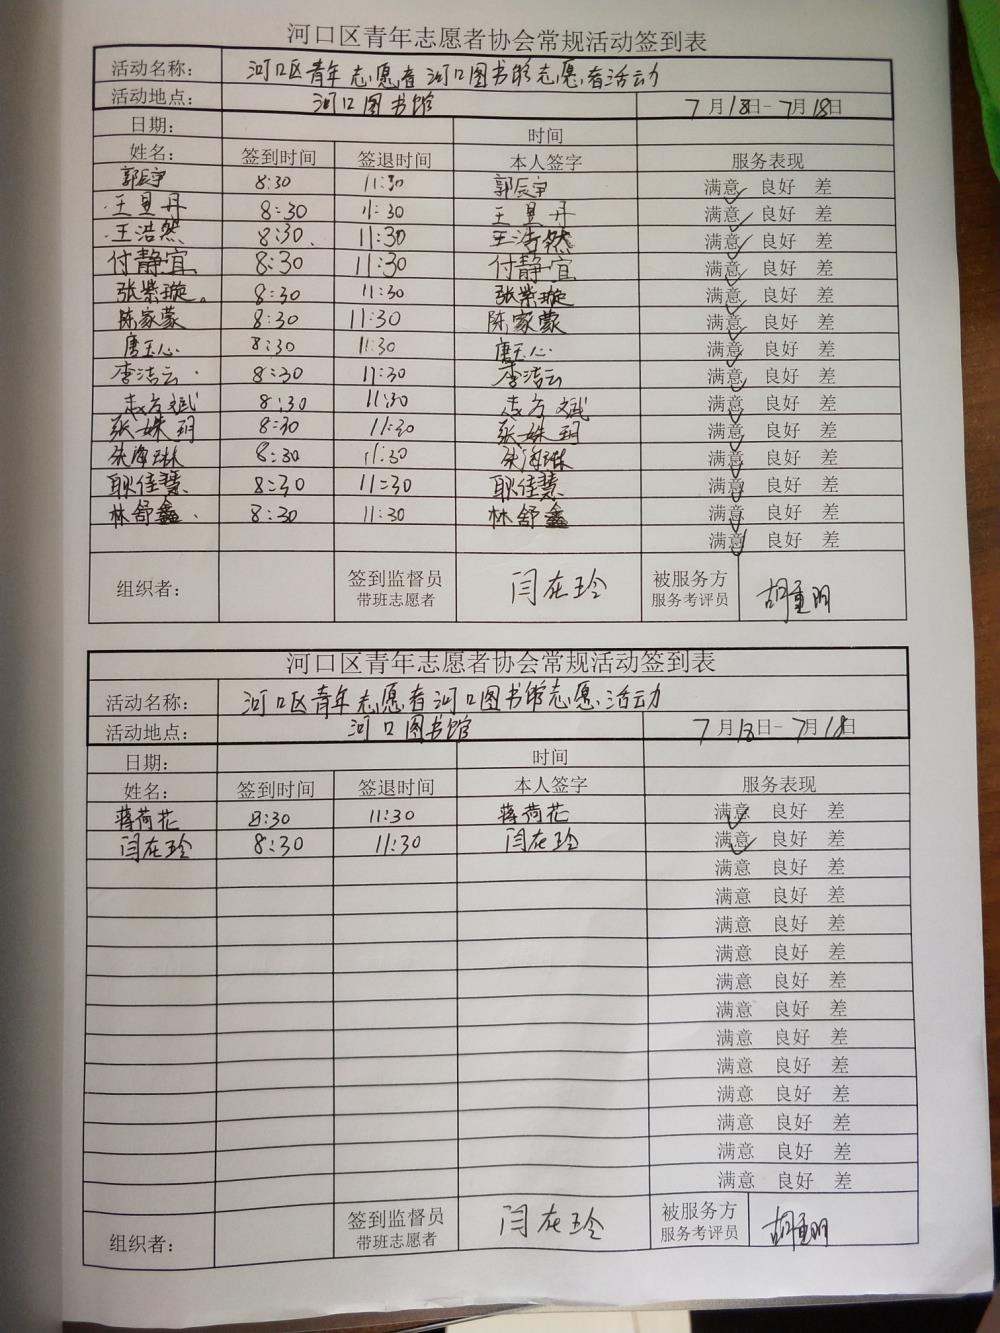 河口区青年志愿者协会常规活动签到表
活动名称: 河口区青年志愿者河口图书馆志愿者活动
活动地点: 河口图书馆 7月18日-7月18日
日期: 时间
姓名: 签到时间 签退时间 本人签字 服务表现
郭辰宇 8:30 11:30 郭辰宇 满意 良好 差
王昱丹 8:30 11:30 王昱丹 满意 良好 差
王浩然 8:30 11:30 王浩然 满意 良好 差
付静宜 8:30 11:30 付静宜 满意 良好 差
张紫璇 8:30 11:30 张紫璇 满意 良好 差
陈家蒙 8:30 11:30 陈家蒙 满意 良好 差
唐玉心 8:30 11:30 唐玉心 满意 良好 差
李洁云 8:30 11:30 李洁云 满意 良好 差
8:30 11:30 满意 良好 差
张姝玥 8:30 11:30 张姝玥 满意 良好 差
8:30 11:30 满意 良好 差
耿佳慧 8:30 11:30 耿佳慧 满意 良好 差
林舒鑫 8:30 11:30 林舒鑫 满意 良好 差
满意 良好 差
组织者: 签到监督员 带班志愿者 闫在玲 被服务方 服务考评员 胡重明
河口区青年志愿者协会常规活动签到表
活动名称: 河口区青年志愿者河口图书馆志愿活动
活动地点: 河口图书馆 7月18日-7月18日
日期: 时间
姓名: 签到时间 签退时间 本人签字 服务表现
蒋荷花 8:30 11:30 蒋荷花 满意 良好 差
闫在玲 8:30 11:30 闫在玲 满意 良好 差
满意 良好 差
满意 良好 差
满意 良好 差
满意 良好 差
满意 良好 差
满意 良好 差
满意 良好 差
满意 良好 差
满意 良好 差
满意 良好 差
满意 良好 差
满意 良好 差
组织者: 签到监督员 带班志愿者 闫在玲 被服务方 服务考评员 胡重明